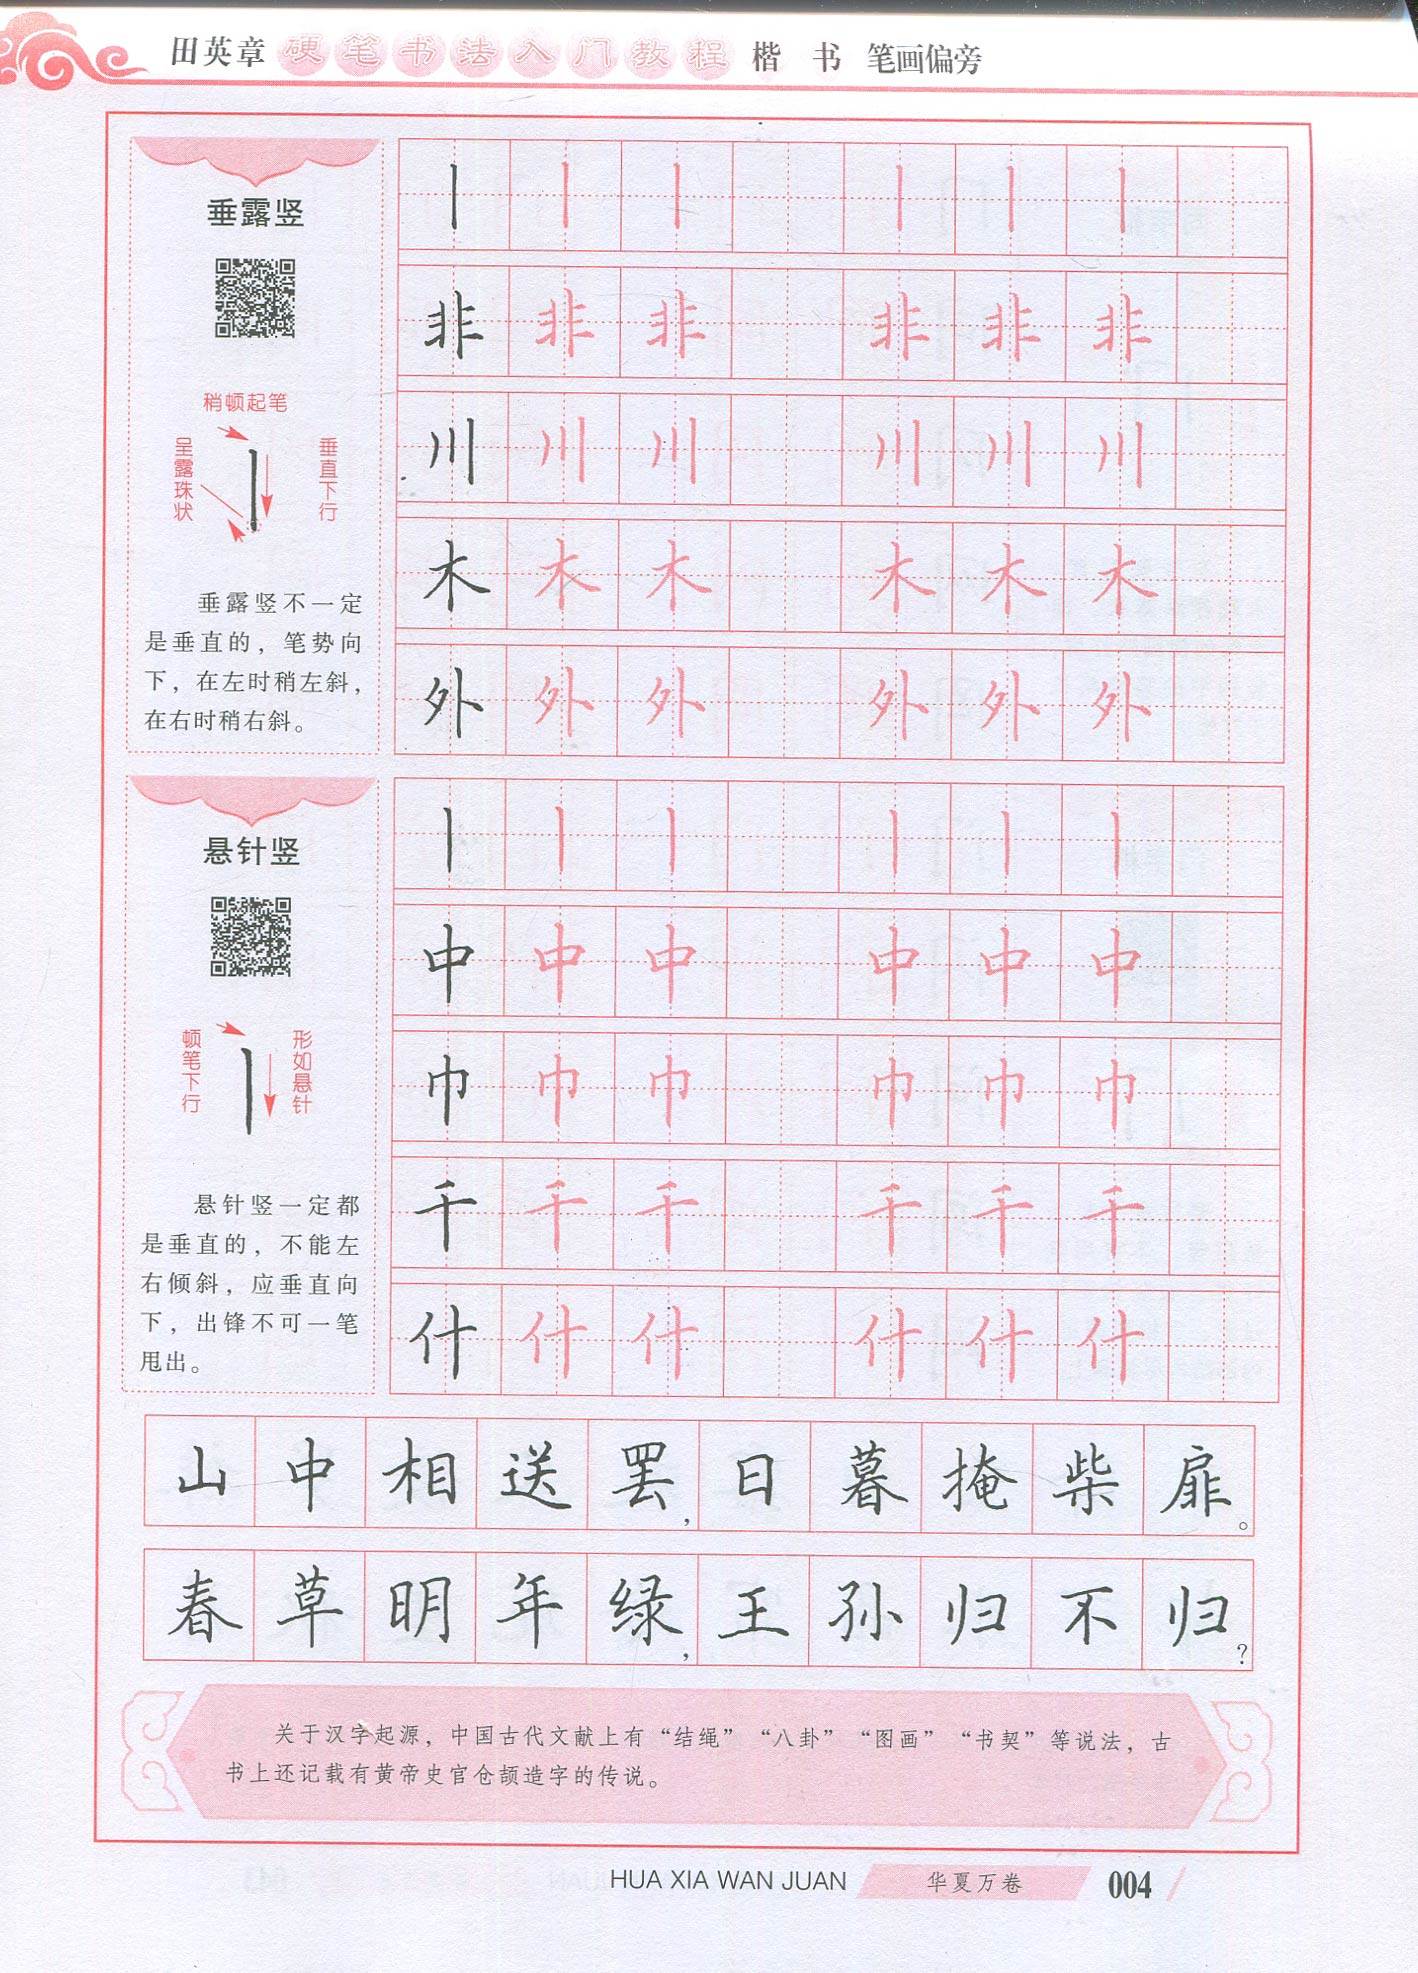 田英章 硬笔书法入门教程 楷 书 笔画偏旁
垂露竖
稍顿起笔
呈露珠状
垂直下行
垂露竖不一定
是垂直的，笔势向
下，在左时稍左斜，
在右时稍右斜。
丨 丨 丨 丨 丨 丨
非 非 非 非 非 非
川 川 川 川 川 川
木 木 木 木 木 木
外 外 外 外 外 外
悬针竖
顿笔下行
形如悬针
悬针竖一定都
是垂直的，不能左
右倾斜，应垂直向
下，出锋不可一笔
甩出。
丨 丨 丨 丨 丨 丨
中 中 中 中 中 中
巾 巾 巾 巾 巾 巾
千 千 千 千 千 千
什 什 什 什 什 什
山中相送罢，日暮掩柴扉。
春草明年绿，王孙归不归？
关于汉字起源，中国古代文献上有“结绳”“八卦”“图画”“书契”等说法，古
书上还记载有黄帝史官仓颉造字的传说。
HUA XIA WAN JUAN 华夏万卷 004